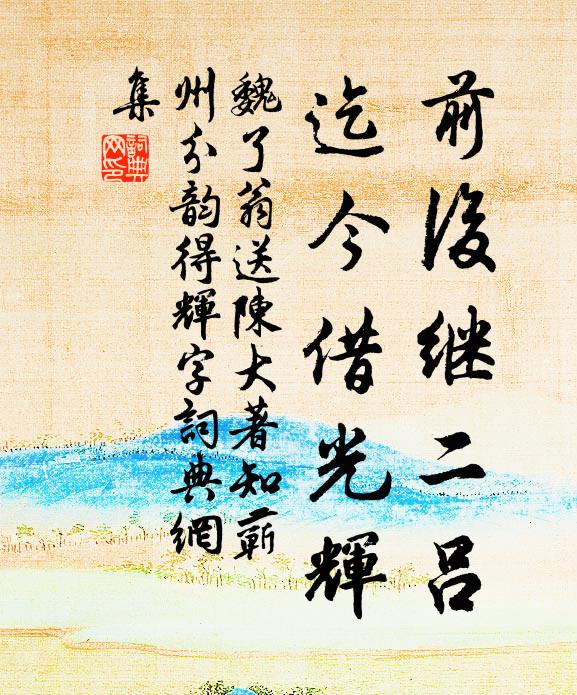 前後继二吕
迄今借光輝
魏了翁送陳大著知蘄
州分韵得輝字詞典網
集
詞典
网印